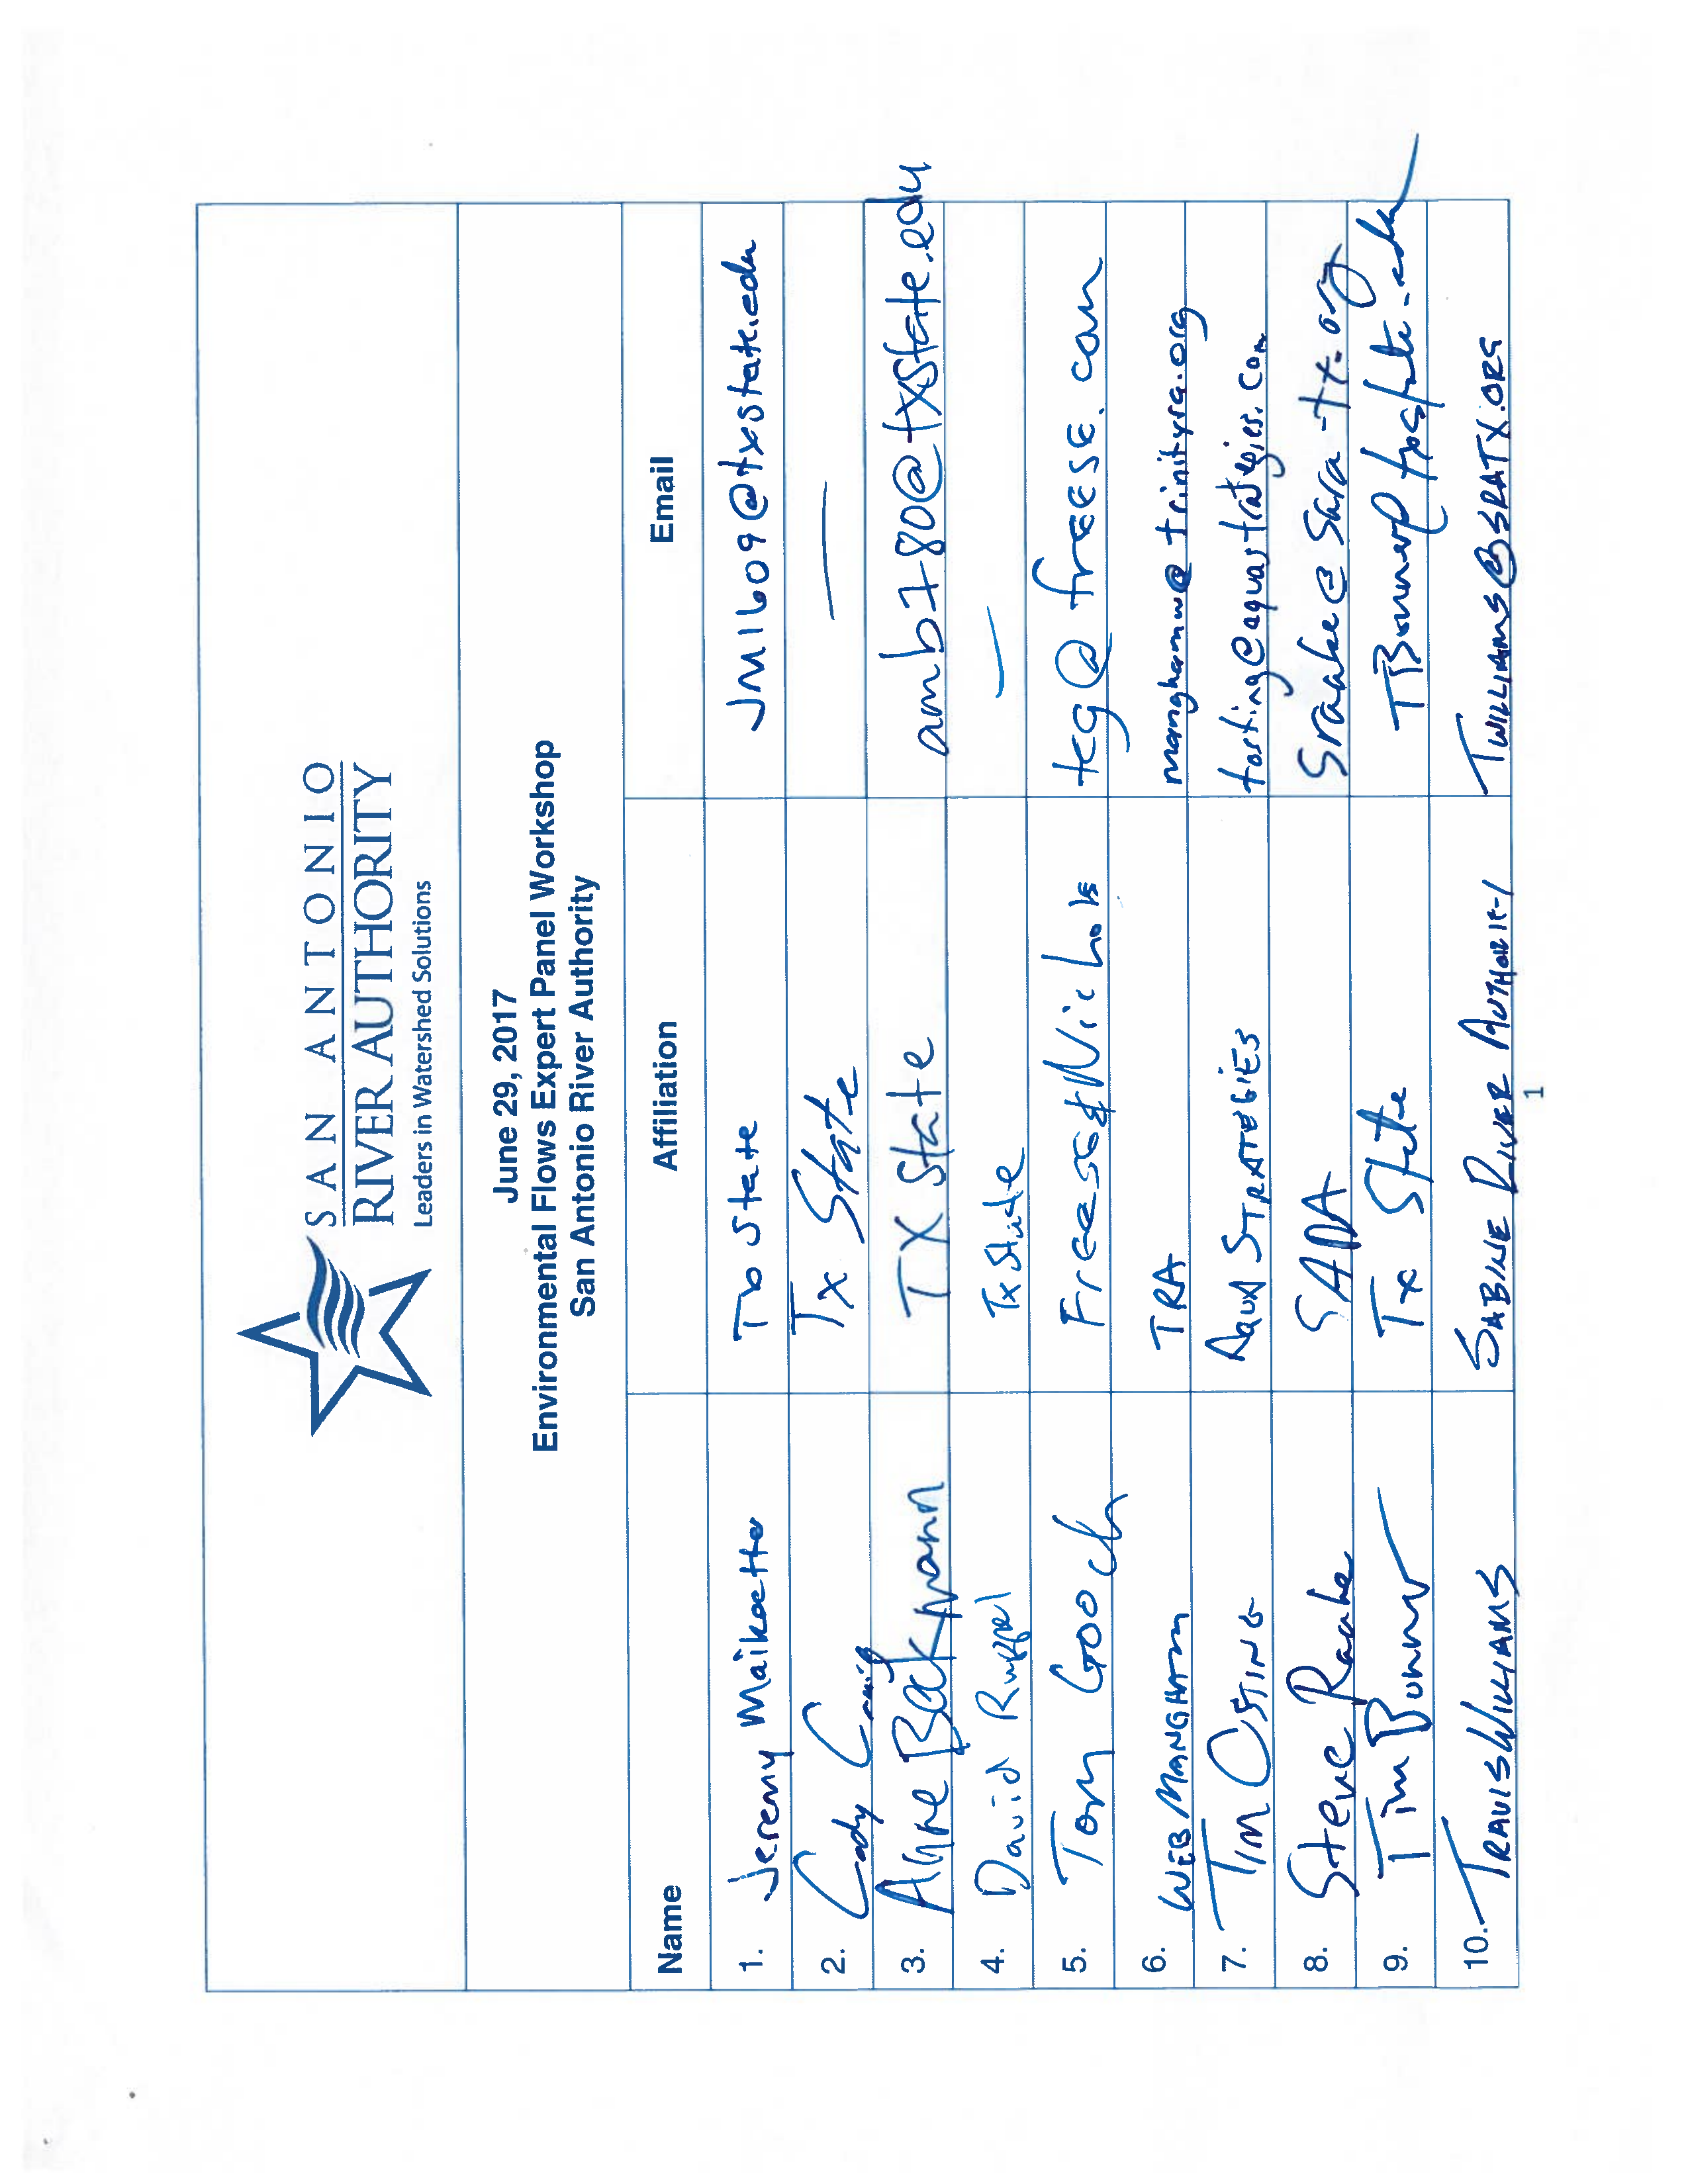 SAN ANTONIO
RIVER AUTHORITY
Leaders in Watershed Solutions
June 29, 2017
Environmental Flows Expert Panel Workshop
San Antonio River Authority
Name Affiliation Email
1. Jeremy Maikoetter Tx State JM1609@txstate.edu
2. Cody Craig Tx State —
3. Anne Bachmann TX State amb780@txstate.edu
4. David Ruppel Tx State —
5. Tom Gooch Freese & Nichols tcg@freese.com
6. WEB MANGHAM TRA manghamw@trinityra.org
7. TIM OSTING AQUA STRATEGIES tosting@aquastrategies.com
8. Steve Raabe SARA sraabe@sara-tx.org
9. Tim Bonner Tx State
10. TRAVIS WILLIAMS SABINE RIVER AUTHORITY TWILLIAMS@SRATX.ORG
1